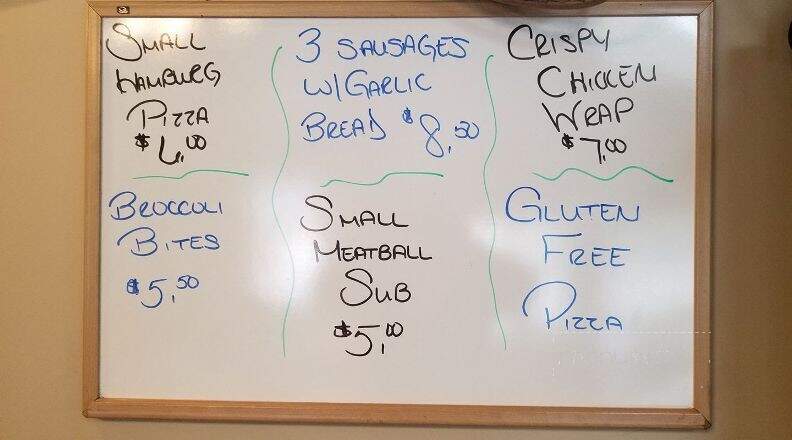 SMALL
HAMBURG
PIZZA
$6.00
3 SAUSAGES
W/GARLIC
BREAD $8.50
CRISPY
CHICKEN
WRAP
$7.00
BROCCOLI
BITES
$5.50
SMALL
MEATBALL
SUB
$5.00
GLUTEN
FREE
PIZZA